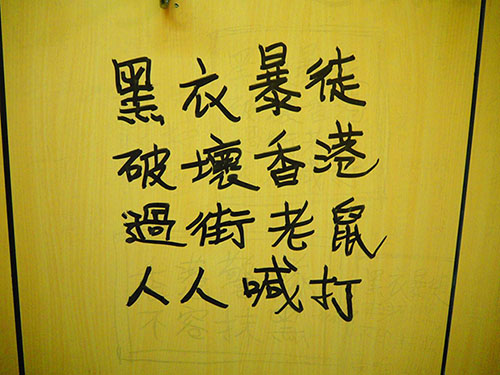 黑衣暴徒
破壞香港
過街老鼠
人人喊打